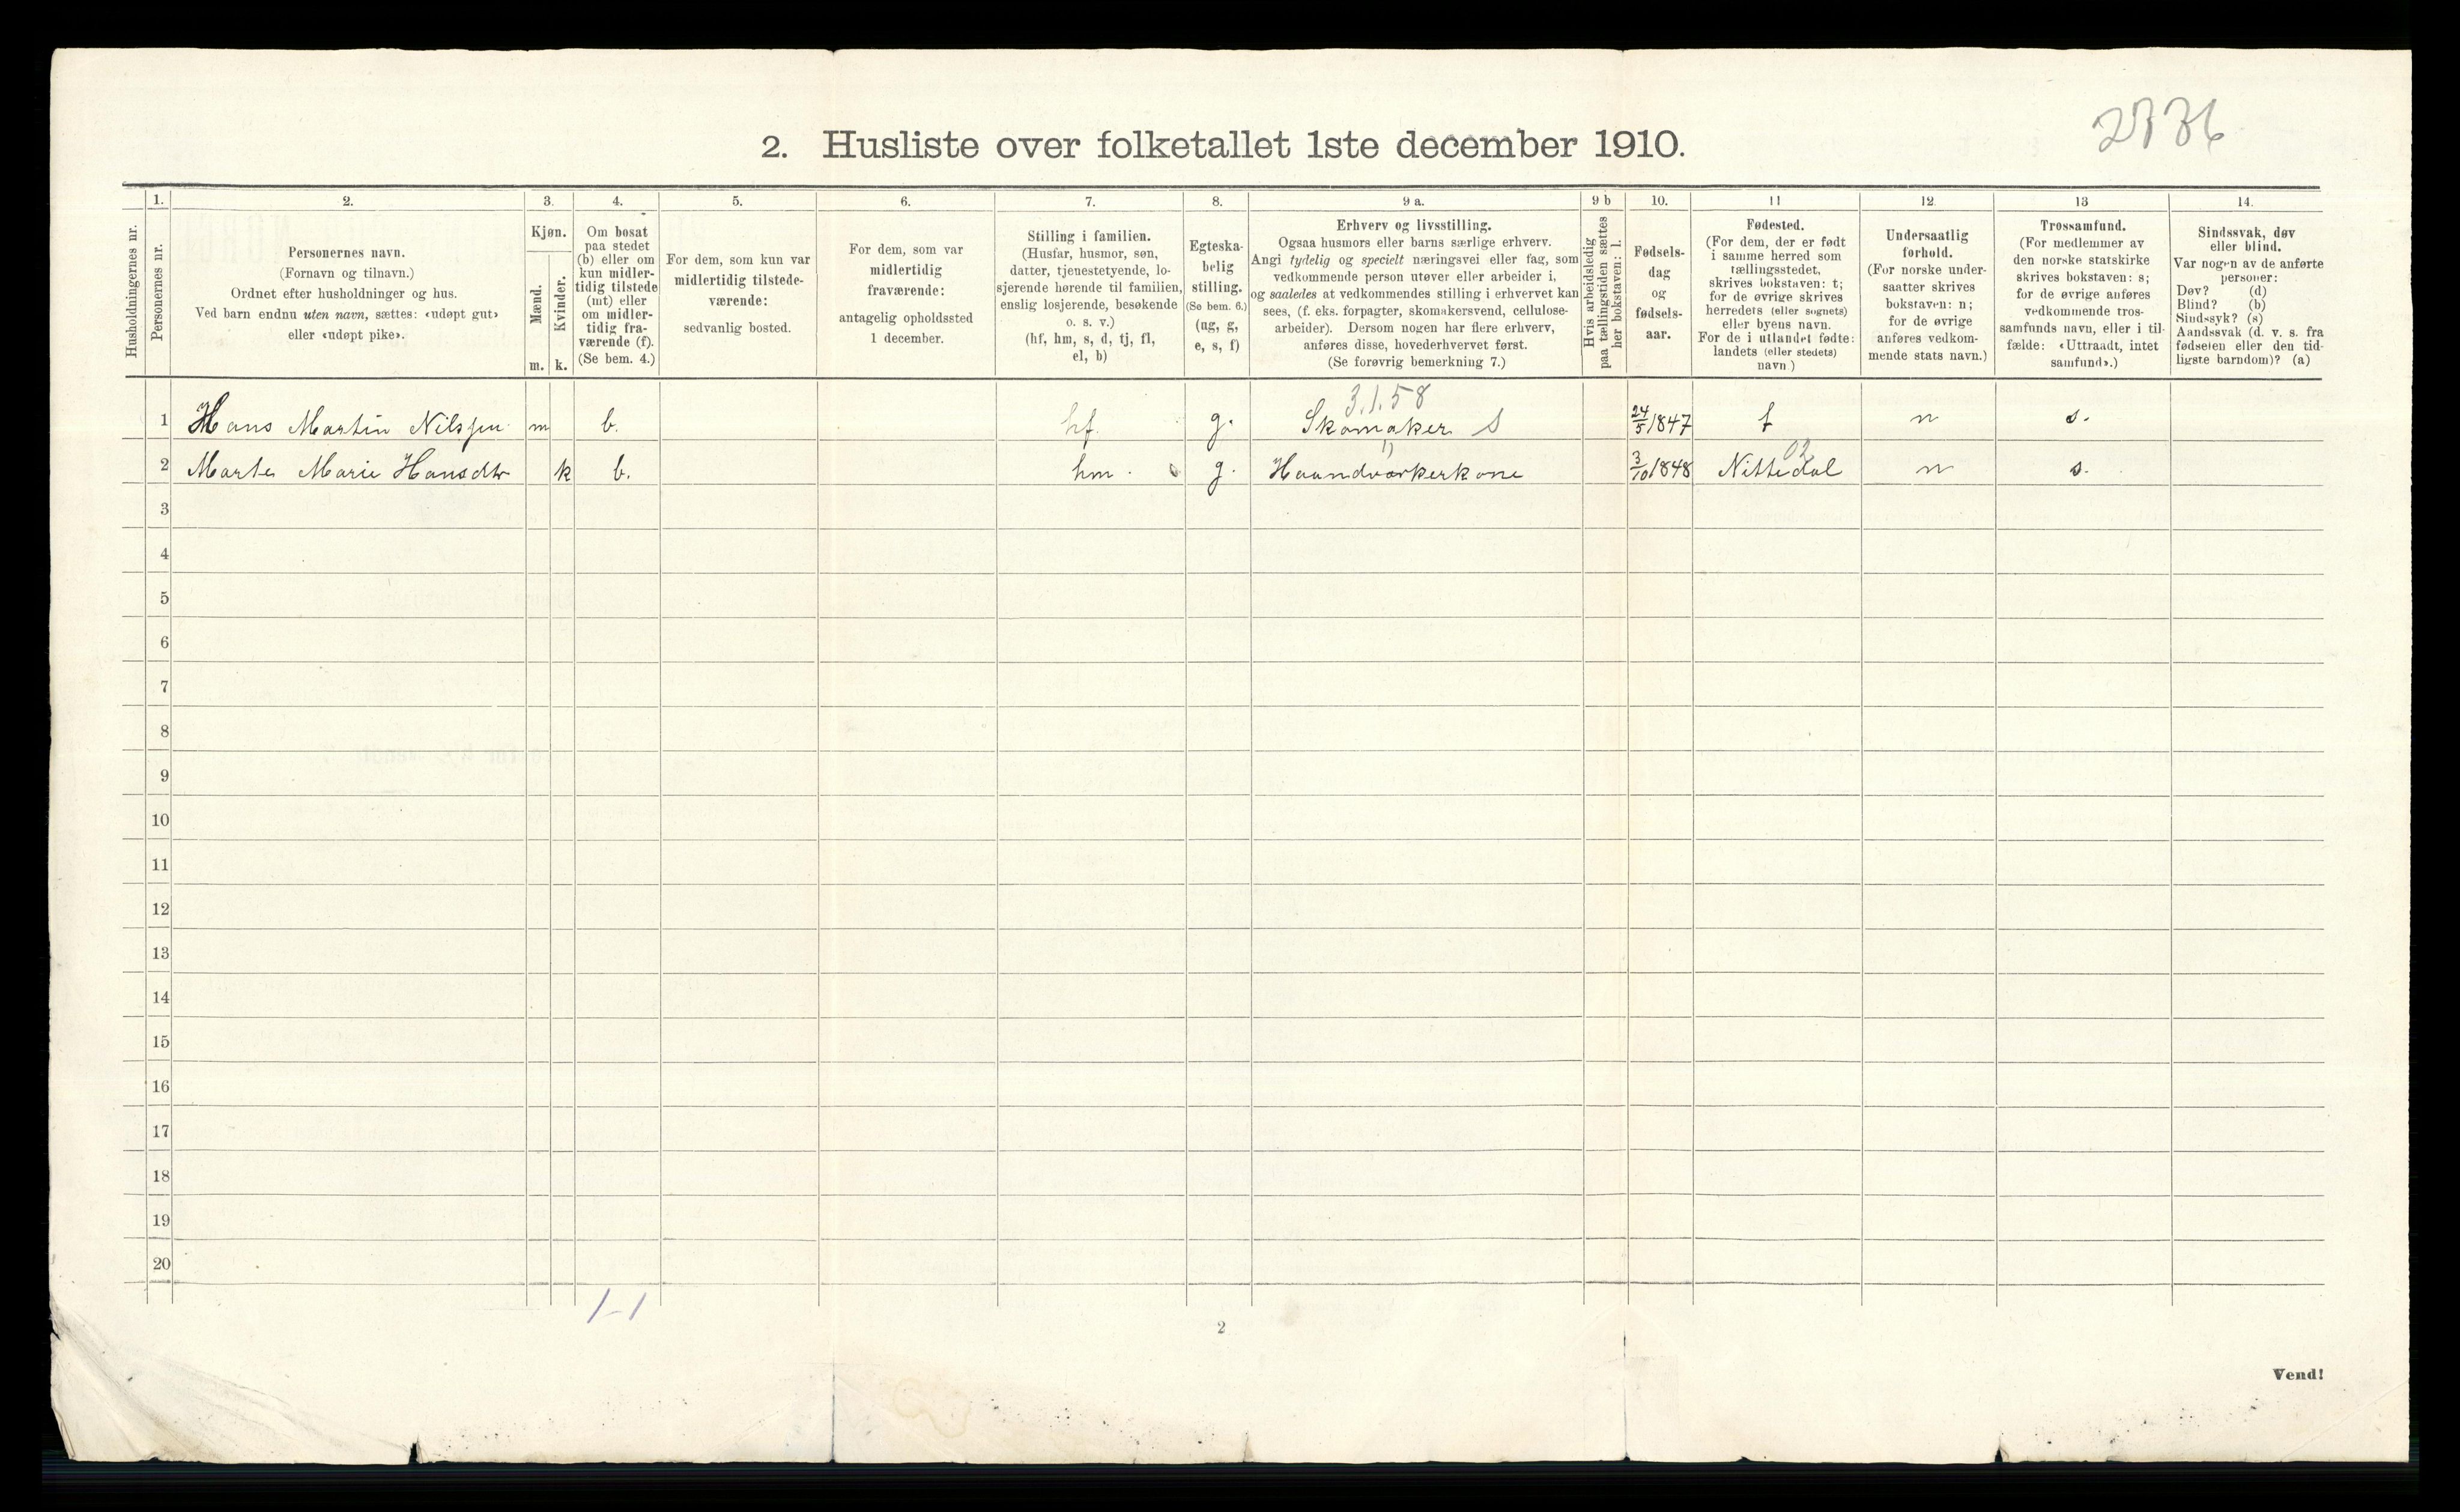 2736
2. Husliste over folketallet 1ste december 1910.
1. 2. 3. 4. 5. 6. 7. 8. 9 a. 9 b 10. 11 12. 13 14.
Husholdningernes nr.
Personernes nr.
Personernes navn.
(Fornavn og tilnavn.)
Ordnet efter husholdninger og hus.
Ved barn endnu uten navn, sættes: «udøpt gut»
eller «udøpt pike».
Kjøn.
Mænd.
Kvinder.
m. k.
Om bosat
paa stedet
(b) eller om
kun midler-
tidig tilstede
(mt) eller
om midler-
tidig fra-
værende (f).
(Se bem. 4.)
For dem, som kun var
midlertidig tilstede-
værende:
sedvanlig bosted.
For dem, som var
midlertidig
fraværende:
antagelig opholdssted
1 december.
Stilling i familien.
(Husfar, husmor, søn,
datter, tjenestetyende, lo-
sjerende hørende til familien,
enslig losjerende, besøkende
o. s. v.)
(hf, hm, s, d, tj, fl,
el, b)
Egteska-
belig
stilling.
(Se bem. 6.)
(ug, g,
e, s, f)
Erhverv og livsstilling.
Ogsaa husmors eller barns særlige erhverv.
Angi tydelig og specielt næringsvei eller fag, som
vedkommende person utøver eller arbeider i,
og saaledes at vedkommendes stilling i erhvervet kan
sees, (f. eks. forpagter, skomakersvend, cellulose-
arbeider). Dersom nogen har flere erhverv,
anføres disse, hovederhvervet først.
(Se forøvrig bemerkning 7.)
Hvis arbeidsledig
paa tællingstiden sættes
her bokstaven: l.
Fødsels-
dag
og
fødsels-
aar.
Fødested.
(For dem, der er født
i samme herred som
tællingsstedet,
skrives bokstaven: t;
for de øvrige skrives
herredets (eller sognets)
eller byens navn.
For de i utlandet fødte:
landets (eller stedets)
navn.)
Undersaatlig
forhold.
(For norske under-
saatter skrives
bokstaven: n;
for de øvrige
anføres vedkom-
mende stats navn.)
Trossamfund.
(For medlemmer av
den norske statskirke
skrives bokstaven: s;
for de øvrige anføres
vedkommende tros-
samfunds navn, eller i til-
fælde: «Uttraadt, intet
samfund».)
Sindssvak, døv
eller blind.
Var nogen av de anførte
personer:
Døv? (d)
Blind? (b)
Sindssyk? (s)
Aandssvak (d. v. s. fra
fødselen eller den tid-
ligste barndom)? (a)
3.1.58
1 Hans Martin Nilssen m b. hf. g. Skomaker S 24/5 1847 t n s.
1) 02
2 Marte Marie Hansdtr k b. hm. g. Haandværkerkone 3/10 1848 Nittedal n s.
3
4
5
6
7
8
9
10
11
12
13
14
15
16
17
18
19
20
1-1
2
Vend!